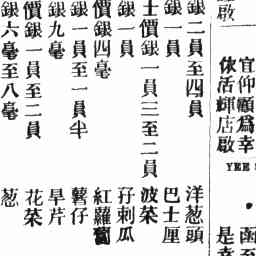 啟
宜仰顧為幸
依活輝店啟
YEE
函至
是幸
洋葱頭
銀二員至四員
巴士厘
銀一員
波菜
士價銀一員三至二員
孖剌瓜
銀一員
紅蘿蔔
價銀四毫
薯仔
銀一員至一員半
旱芹
銀九毫
花菜
價銀一員至二員
葱
銀六毫至八毫